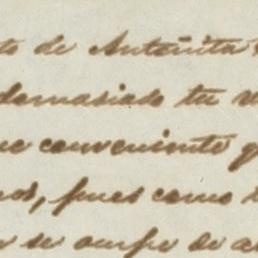 to de Antoñita
demasiado tu
ue conveniente q
nos, pues como
se ocupe de a